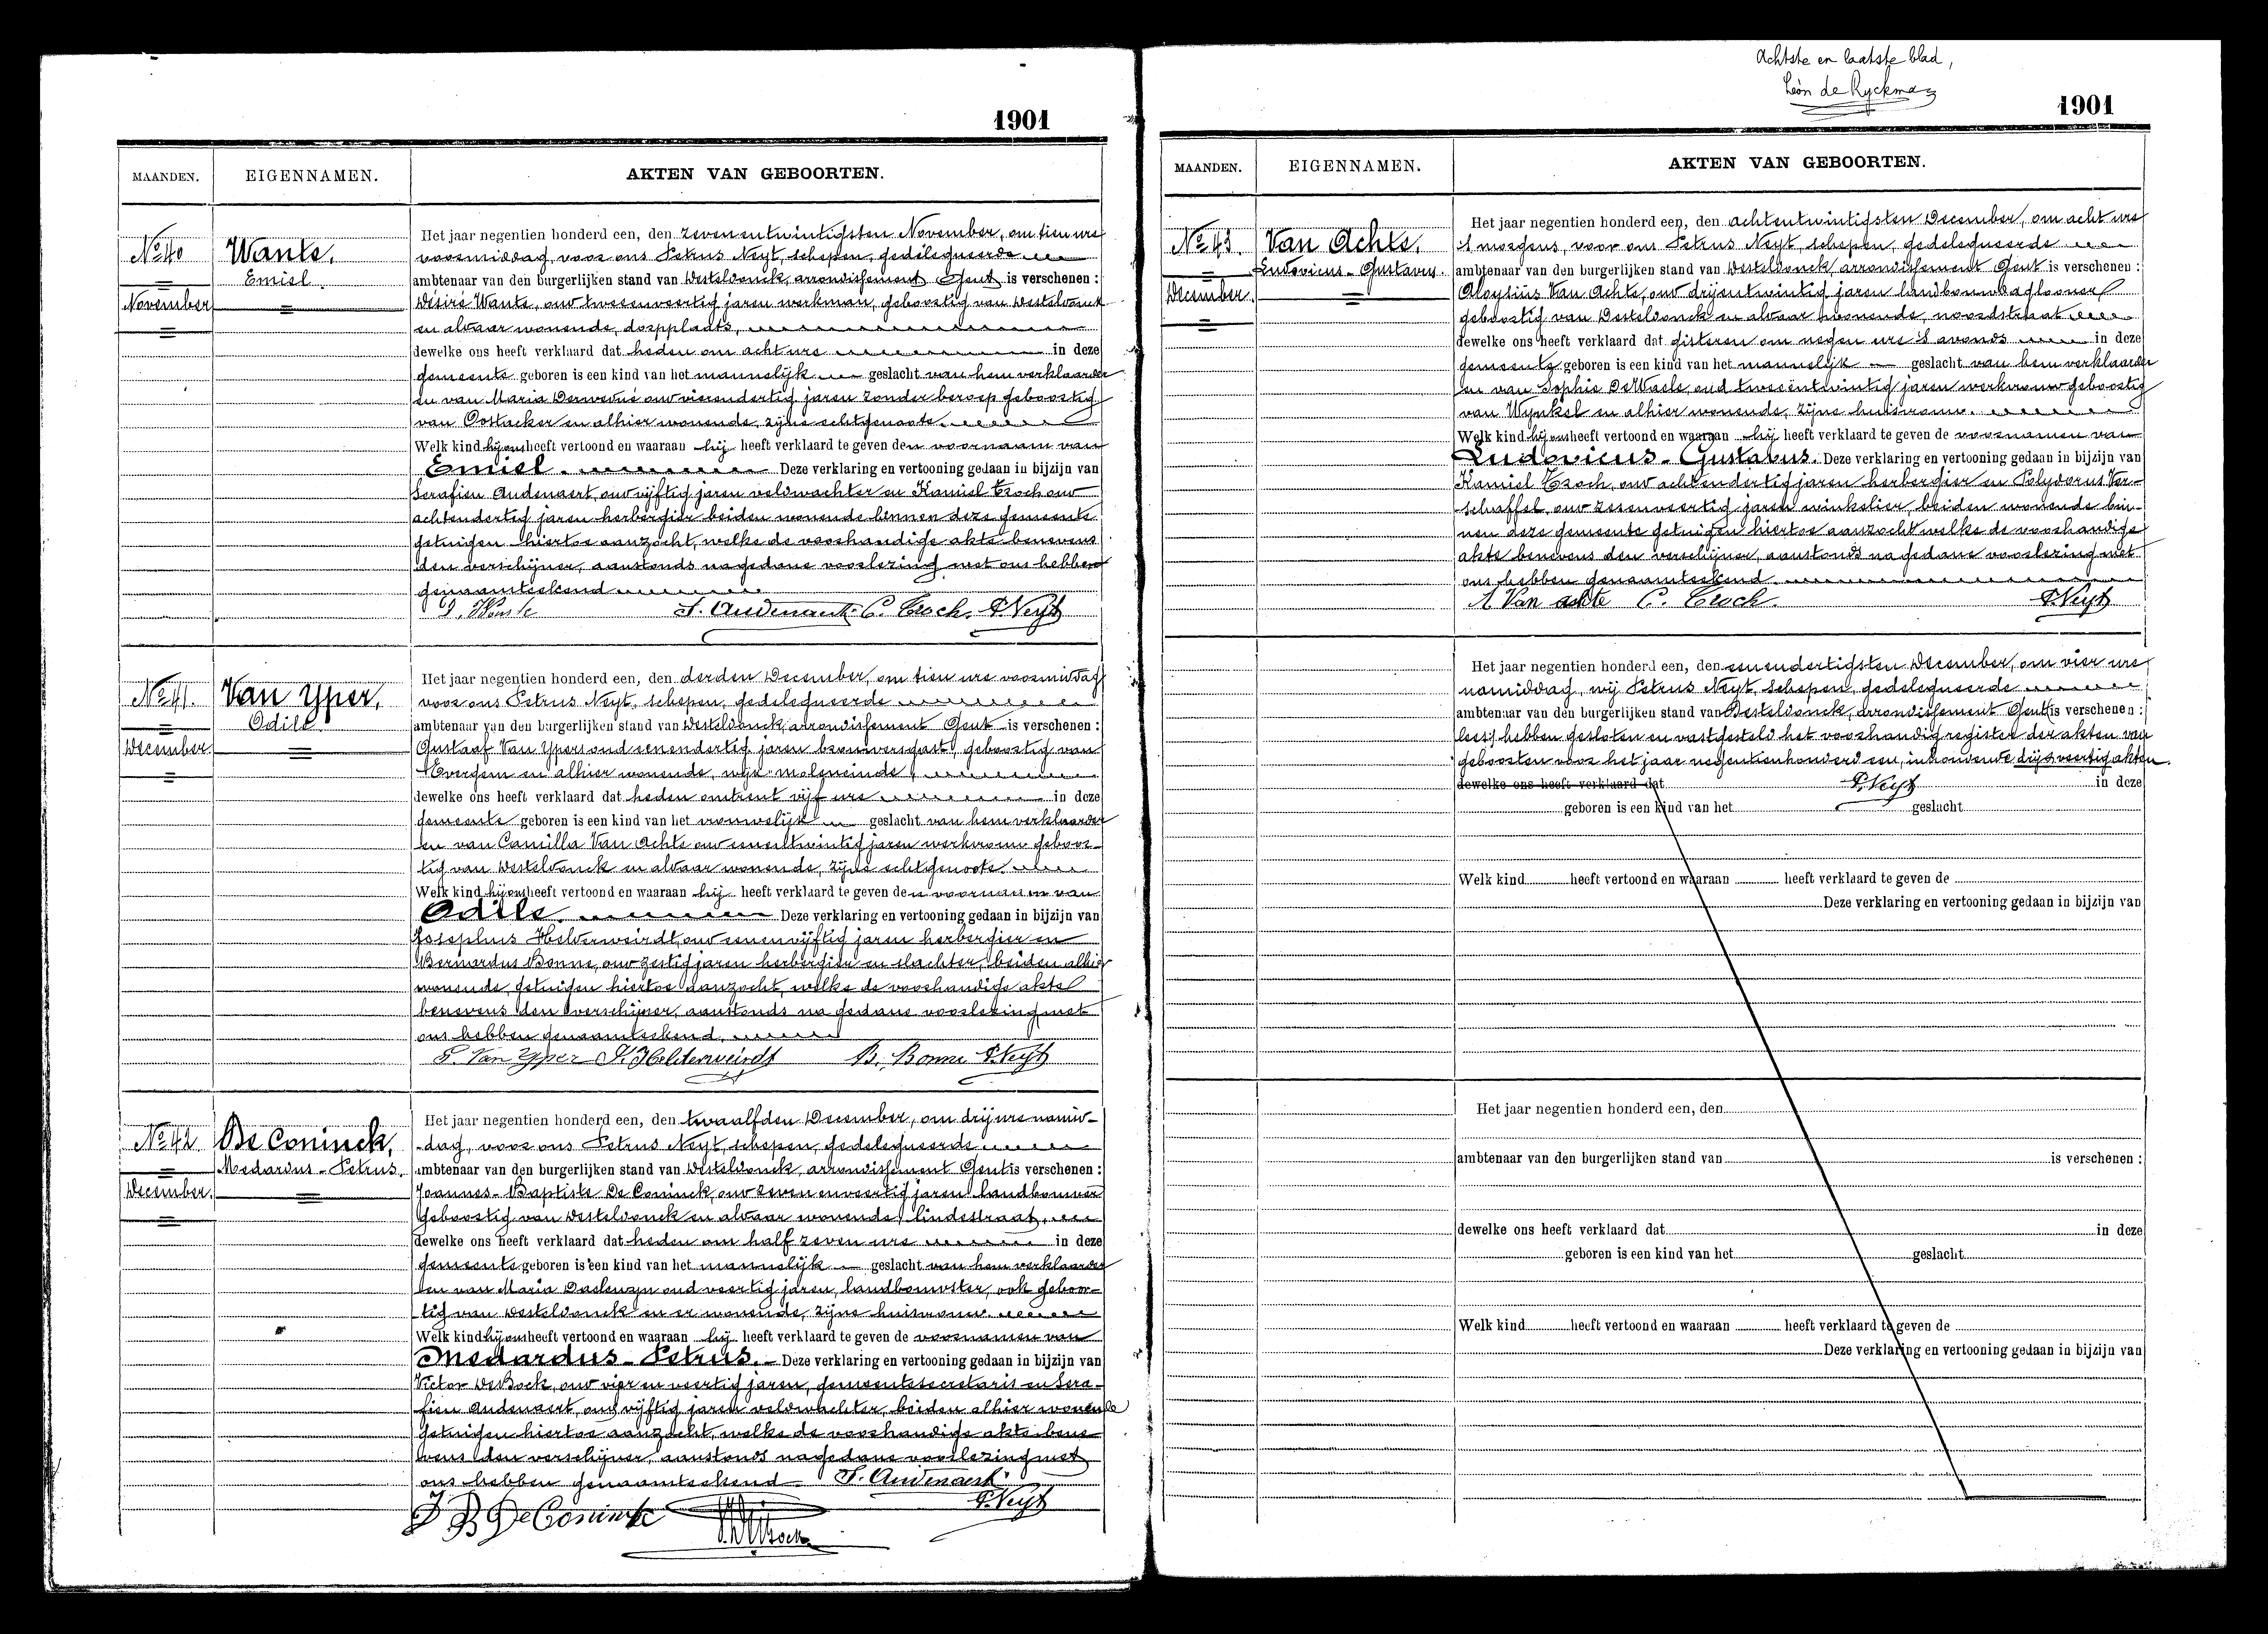 1901
MAANDEN.
EIGENNAMEN.
AKTEN VAN GEBOORTEN.
No 40
November
Wante,
Emiel.
Het jaar negentien honderd een, den zevenentwintigsten November, om tien ure
voormiddag, voor ons Petrus Neyt, schepen, gedelegueerde
ambtenaar van den burgerlijken stand van Desteldonck, arrondissement Gent is verschenen :
Désiré Wante, oud tweeenveertig jaren werkman, geboortig van Desteldonck
en aldaar wonende, dorpplaats,
dewelke ons heeft verklaard dat heden om acht ure in deze
gemeente geboren is een kind van het mannelijk geslacht van hem verklaarder
en van Maria oud vierendertig jaren zonder beroep geboortig
van Oostacker en alhier wonende, zijne echtgenoote.
Welk kind hij ons heeft vertoond en waaraan hij heeft verklaard te geven den voornaam van
Emiel. Deze verklaring en vertooning gedaan in bijzijn van
Serafien Audenaert, oud vijftig jaren veldwachter en Kamiel Croch oud
achtendertig jaren herbergier beiden wonende binnen deze gemeente
getuigen hiertoe aanzocht, welke de voorhandige akte benevens
den verschijner, aanstonds na gedane voorlezing met ons hebben
genaamteekend
D. Wante S. Audenaert C. Croch. P. Neyt
No 41.
December
Van Yper,
Odile
Het jaar negentien honderd een, den derden December, om tien ure voormiddag
voor ons Petrus Neyt, schepen, gedelegueerde
ambtenaar van den burgerlijken stand van Desteldonck, arrondissement Gent is verschenen :
Gustaaf Van Yper, oud eenendertig jaren brouwersgast, geboortig van
Evergem en alhier wonende, wijk moleneinde,
dewelke ons heeft verklaard dat heden omtrent vijf ure in deze
gemeente geboren is een kind van het vrouwelijk geslacht van hem verklaarder
en van Camilla Van Achte oud eenentwintig jaren werkvrouw geboor-
tig van Desteldonck en aldaar wonende, zijne echtgenoote.
Welk kind hij ons heeft vertoond en waaraan hij heeft verklaard te geven den voornaam van
Odile. Deze verklaring en vertooning gedaan in bijzijn van
Josephus Helderweirdt, oud eenenvijftig jaren herbergier en
Bernardus Bonne, oud zestig jaren herbergier en slachter, beiden alhier
wonende, getuigen hiertoe aanzocht, welke de voorhandige akte
benevens den verschijner, aanstonds na gedane voorlezing met
ons hebben genaamteekend.
G. Van Yper J. Helderweirdt B. Bonne P. Neyt
No 42
December.
De Coninck,
Medardus-Petrus.
Het jaar negentien honderd een, den twaalfden December, om drij ure namid-
dag, voor ons Petrus Neyt, schepen, gedelegueerde
ambtenaar van den burgerlijken stand van Desteldonck, arrondissement Gent is verschenen :
Joannes-Baptiste De Coninck, oud zevenenveertig jaren landbouwer
geboortig van Desteldonck en aldaar wonende, lindestraat,
dewelke ons heeft verklaard dat heden om half zeven ure in deze
gemeente geboren is een kind van het mannelijk geslacht van hem verklaarder
en van Maria oud veertig jaren, landbouwster, ook geboor-
tig van Desteldonck en er wonende, zijne huisvrouw.
Welk kind hij ons heeft vertoond en waaraan hij heeft verklaard te geven de voornamen van
Medardus-Petrus. Deze verklaring en vertooning gedaan in bijzijn van
Victor De Bock, oud vier en veertig jaren, gemeentesecretaris en Sera-
fien Audenaert, oud vijftig jaren veldwachter, beiden alhier wonende
getuigen hiertoe aanzocht, welke de voorhandige akte bene-
vens den verschijner, aanstonds na gedane voorlezing met
ons hebben genaamteekend S. Audenaert
P. Neyt
J B De Coninck
Achtste en laatste blad,
Léon de Ryckman
1901
MAANDEN.
EIGENNAMEN.
AKTEN VAN GEBOORTEN.
No 43.
December.
Van Achte,
Ludovicus-Gustavus.
Het jaar negentien honderd een, den achtentwintigsten December, om acht ure
's morgens, voor ons Petrus Neyt, schepen, gedelegueerde
ambtenaar van den burgerlijken stand van Desteldonck, arrondissement Gent is verschenen :
Aloysiüs Van Achte, oud drijentwintig jaren landbouwdaglooner
geboortig van Desteldonck en aldaar wonende, noordstraat
dewelke ons heeft verklaard dat gisteren om negen ure 's avonds in deze
gemeente geboren is een kind van het mannelijk geslacht van hem verklaarder
en van Sophie DeWaele, oud tweeëntwintig jaren werkvrouw geboortig
van Wynkel en alhier wonende, zijne huisvrouw.
Welk kind hij ons heeft vertoond en waaraan hij heeft verklaard te geven de voornamen van
Ludovicus-Gustavus. Deze verklaring en vertooning gedaan in bijzijn van
Kamiel Croch, oud achtendertig jaren herbergier en Polydorus Ver-
schaffel, oud zesenveertig jaren winkelier, beiden wonende bin-
nen deze gemeente getuigen hiertoe aanzocht welke de voorhandige
akte benevens den verschijner, aanstonds na gedane voorlezing met
ons hebben genaamteekend
A Van achte C. Croch. P. Neyt
Het jaar negentien honderd een, den eenendertigsten December, om vier ure
namiddag, wij Petrus Neyt, schepen, gedelegueerde
ambtenaar van den burgerlijken stand van Desteldonck, arrondissement Gent is verschenen :
hebben gesloten en vastgesteld het voorhandig register der akten van
geboorten voor het jaar negentienhonderd een, inhoudende drijenveertig akten.
dewelke ons heeft verklaard dat P. Neyt in deze
geboren is een kind van het geslacht
Welk kind heeft vertoond en waaraan heeft verklaard te geven de
Deze verklaring en vertooning gedaan in bijzijn van
Het jaar negentien honderd een, den
ambtenaar van den burgerlijken stand van is verschenen :
dewelke ons heeft verklaard dat in deze
geboren is een kind van het geslacht
Welk kind heeft vertoond en waaraan heeft verklaard te geven de
Deze verklaring en vertooning gedaan in bijzijn van